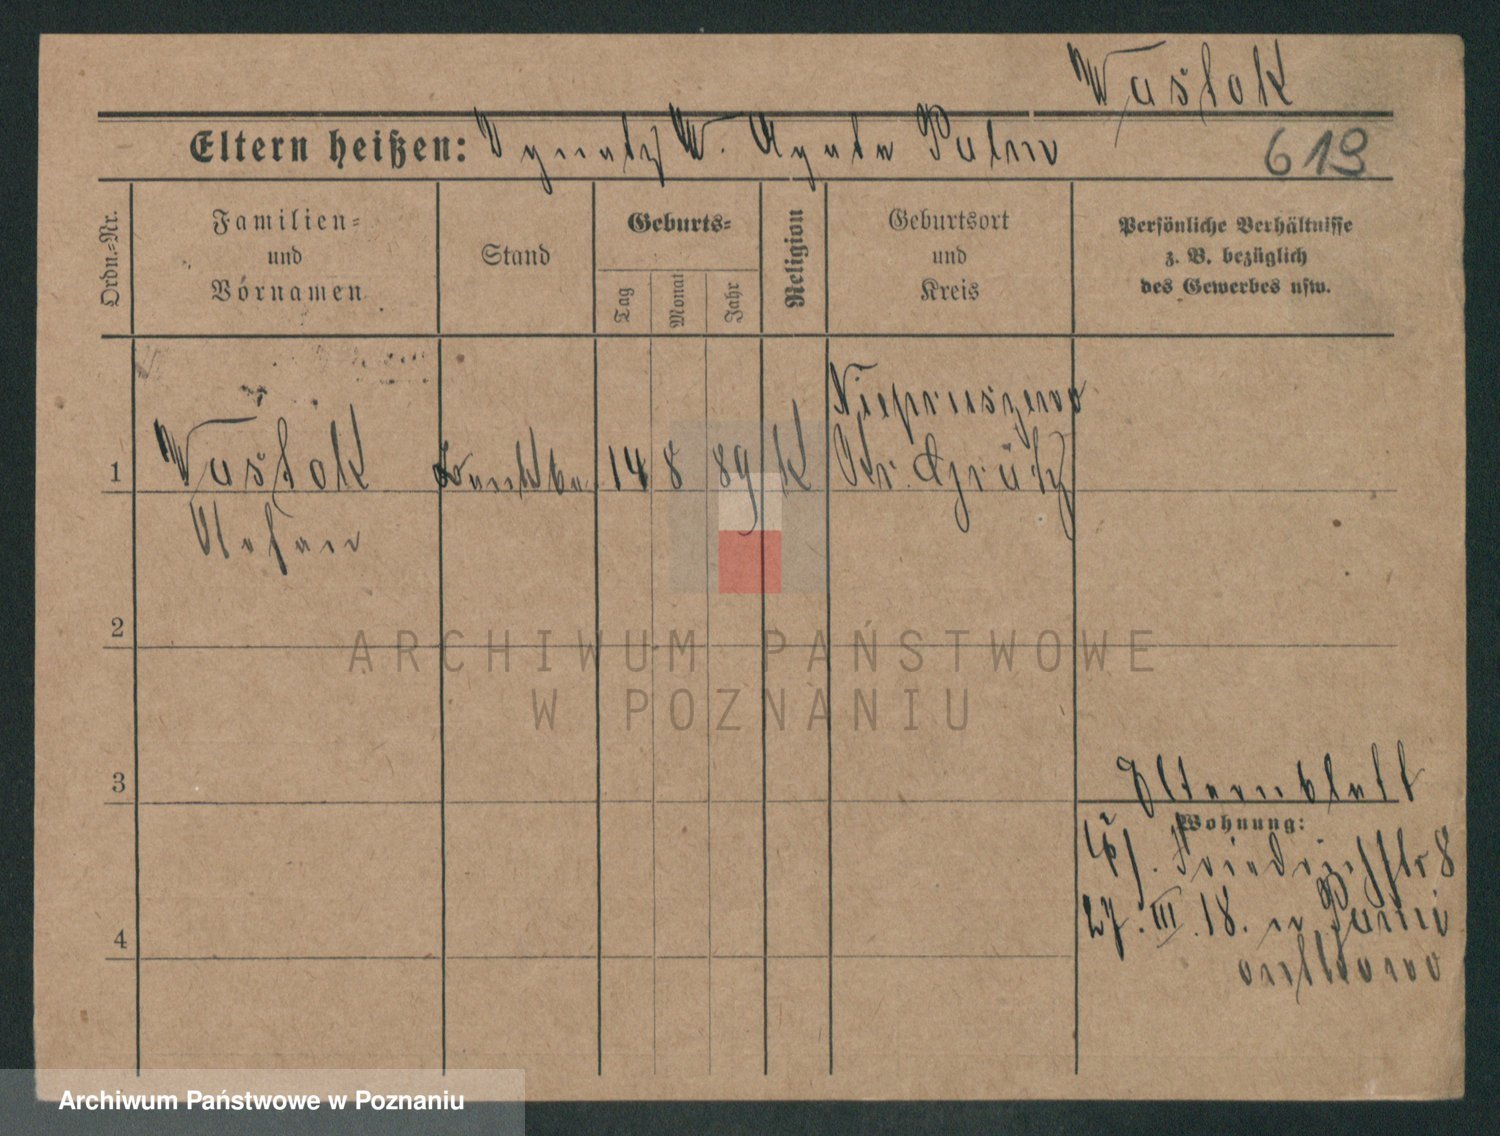 Waštok
Eltern heißen: Ignatz W. Agata
619
Ordn.-Nr.
Familien-
und
Vornamen
Stand
Geburts-
Tag
Monat
Jahr
Religion
Geburtsort
und
Kreis
Persönliche Verhältnisse
z. B. bezüglich
des Gewerbes usw.
Niepruszewo
1 Waštok 14 8 89 K Kr. Grätz
2
ARCHIWUM PAŃSTWOWE
W POZNANIU
3
Elternblatt
Wohnung:
Friedrichstr 8
4
27. III. 18. n
Archiwum Państwowe w Poznaniu